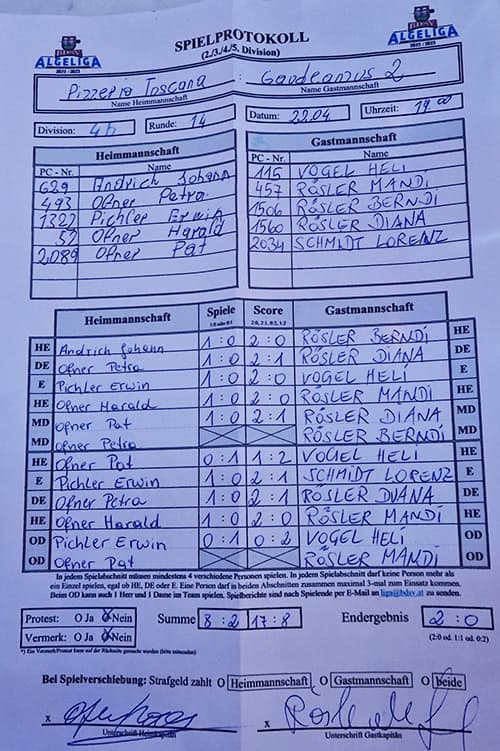 BDSV
ALGELIGA
2022 / 2023
SPIELPROTOKOLL
(2./3./4./5. Division)
BDSV
ALGELIGA
2022 / 2023
Pizzeria Toscana : Gaudeamus 2
Name Heimmannschaft Name Gastmannschaft
Division: 4b Runde: 14 Datum: 22.04 Uhrzeit: 19 00
Heimmannschaft Gastmannschaft
PC - Nr. Name PC - Nr. Name
629 Andrich Johann 115 VOGEL HELI
493 Ofner Petra 457 RÖSLER MANDI
1322 Pichler Erwin 1506 RÖSLER BERNDI
52 Ofner Harald 1560 RÖSLER DIANA
2089 Ofner Pat 2034 SCHMIDT LORENZ
Heimmannschaft Spiele Score Gastmannschaft
1:0 oder 0:1 2:0, 2:1, 0:2, 1:2
HE Andrich Johann 1 : 0 2 : 0 RÖSLER BERNDI HE
DE Ofner Petra 1 : 0 2 : 0 RÖSLER DIANA DE
E Pichler Erwin 1 : 0 2 : 0 VOGEL HELI E
HE Ofner Harald 1 : 0 2 : 0 RÖSLER MANDI HE
MD Ofner Pat 1 : 0 2 : 1 RÖSLER DIANA MD
MD Ofner Petra RÖSLER BERNDI MD
HE Ofner Pat 0 : 1 1 : 2 VOGEL HELI HE
E Pichler Erwin 1 : 0 2 : 1 SCHMIDT LORENZ E
DE Ofner Petra 1 : 0 2 : 1 RÖSLER DIANA DE
HE Ofner Harald 1 : 0 2 : 0 RÖSLER MANDI HE
OD Pichler Erwin 0 : 1 0 : 2 VOGEL HELI OD
OD Ofner Pat RÖSLER MANDI OD
In jedem Spielabschnitt müssen mindestens 4 verschiedene Personen spielen. In jedem Spielabschnitt darf keine Person mehr als
ein Einzel spielen, egal ob HE, DE oder E. Eine Person darf in beiden Abschnitten zusammen maximal 3-mal zum Einsatz kommen.
Beim OD kann auch 1 Herr und 1 Dame im Team spielen. Spielberichte sind nach Spielende per E-Mail an liga@bdsv.at zu senden.
Protest: O Ja O Nein Summe 8 : 2 17 : 8 Endergebnis 2 : 0
Vermerk: O Ja O Nein (2:0 od. 1:1 od. 0:2)
*) Ein Vermerk/Protest kann auf der Rückseite gemacht werden (bitte ankreuzen)
Bei Spielverschiebung: Strafgeld zahlt O Heimmannschaft O Gastmannschaft O beide
x x
Unterschrift Heimkapitän Unterschrift Gastkapitän